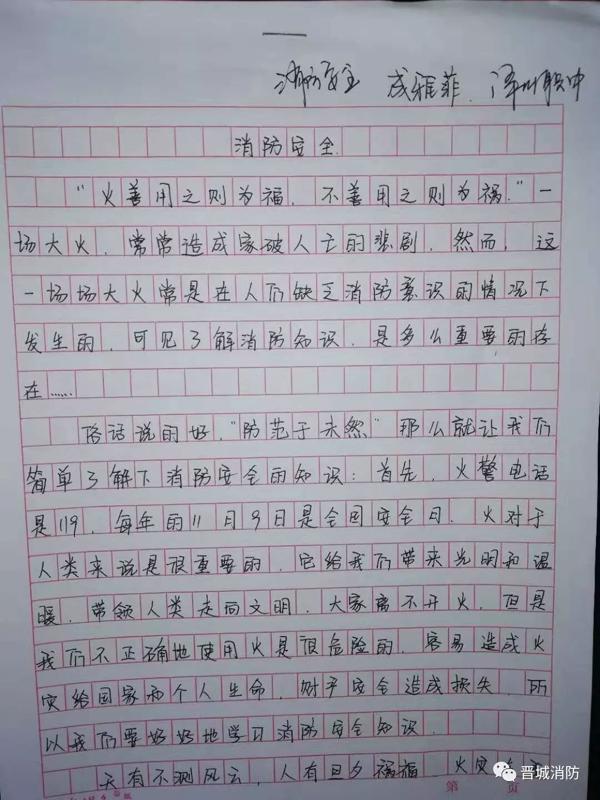 消防安全 成雅菲 泽州职中
消防安全
"火善用之则为福，不善用之则为祸."一
场大火，常常造成家破人亡的悲剧，然而，这
一场场大火常是在人们缺乏消防意识的情况下
发生的，可见了解消防知识，是多么重要的存
在……
俗话说的好，"防范于未然"那么就让我们
简单了解下消防安全的知识：首先，火警电话
是119，每年的11月9日是全国安全日，火对于
人类来说是很重要的，它给我们带来光明和温
暖，带领人类走向文明，大家离不开火，但是
我们不正确地使用火是很危险的，容易造成火
灾给国家和个人生命，财产安全造成损失，所
以我们要好好地学习消防安全知识.
天有不测风云，人有旦夕祸福 火灾
第 页
晋城消防